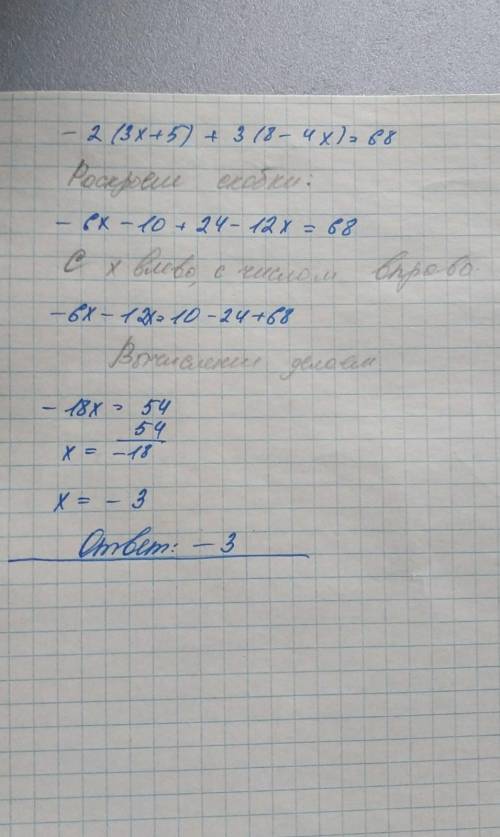 - 2 (3x+5) + 3 (8 - 4x) = 68
Роскроем скобки:
- 6x - 10 + 24 - 12x = 68
С x влево, с числом вправо.
-6x - 12x = 10 - 24 + 68
Вычисления делаем
- 18x = 54
54
x = -18
x = - 3
Ответ: - 3